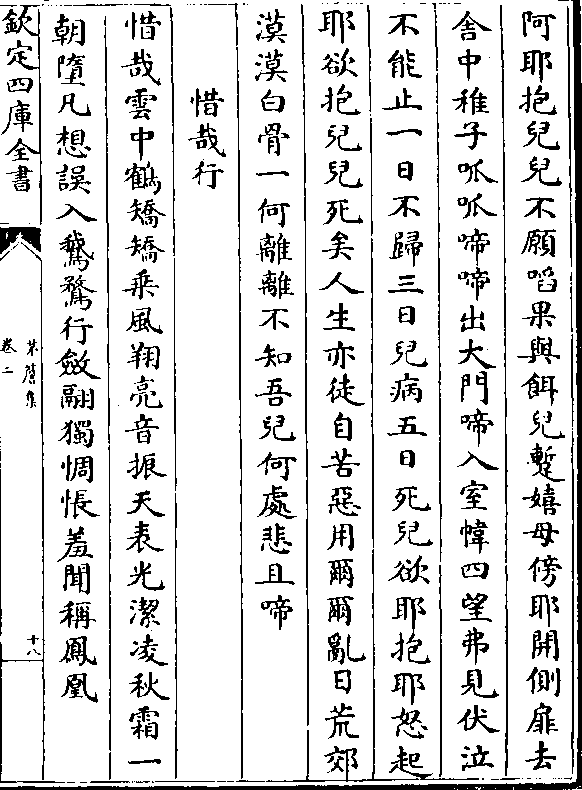 阿耶抱兒兒不願啗果與餌兒蹔嬉母傍耶開側扉去
舎中稚子呱呱啼啼出大門啼入室幃四望弗見伏泣
不能止一日不歸三日兒病五日死兒欲耶抱耶怒起
耶欲抱兒兒死矣人生亦徒自苦惡用爾爾亂日荒郊
漠漠白骨一何離離不知吾兒何處悲且啼
惜哉行
惜哉雲中鶴矯矯乗風翔亮音振天表光潔凌秋霜一
朝墮凡想誤入鵞鶩行斂翮獨惆悵羞聞稱鳳凰
欽定四庫全書
卷二
十八